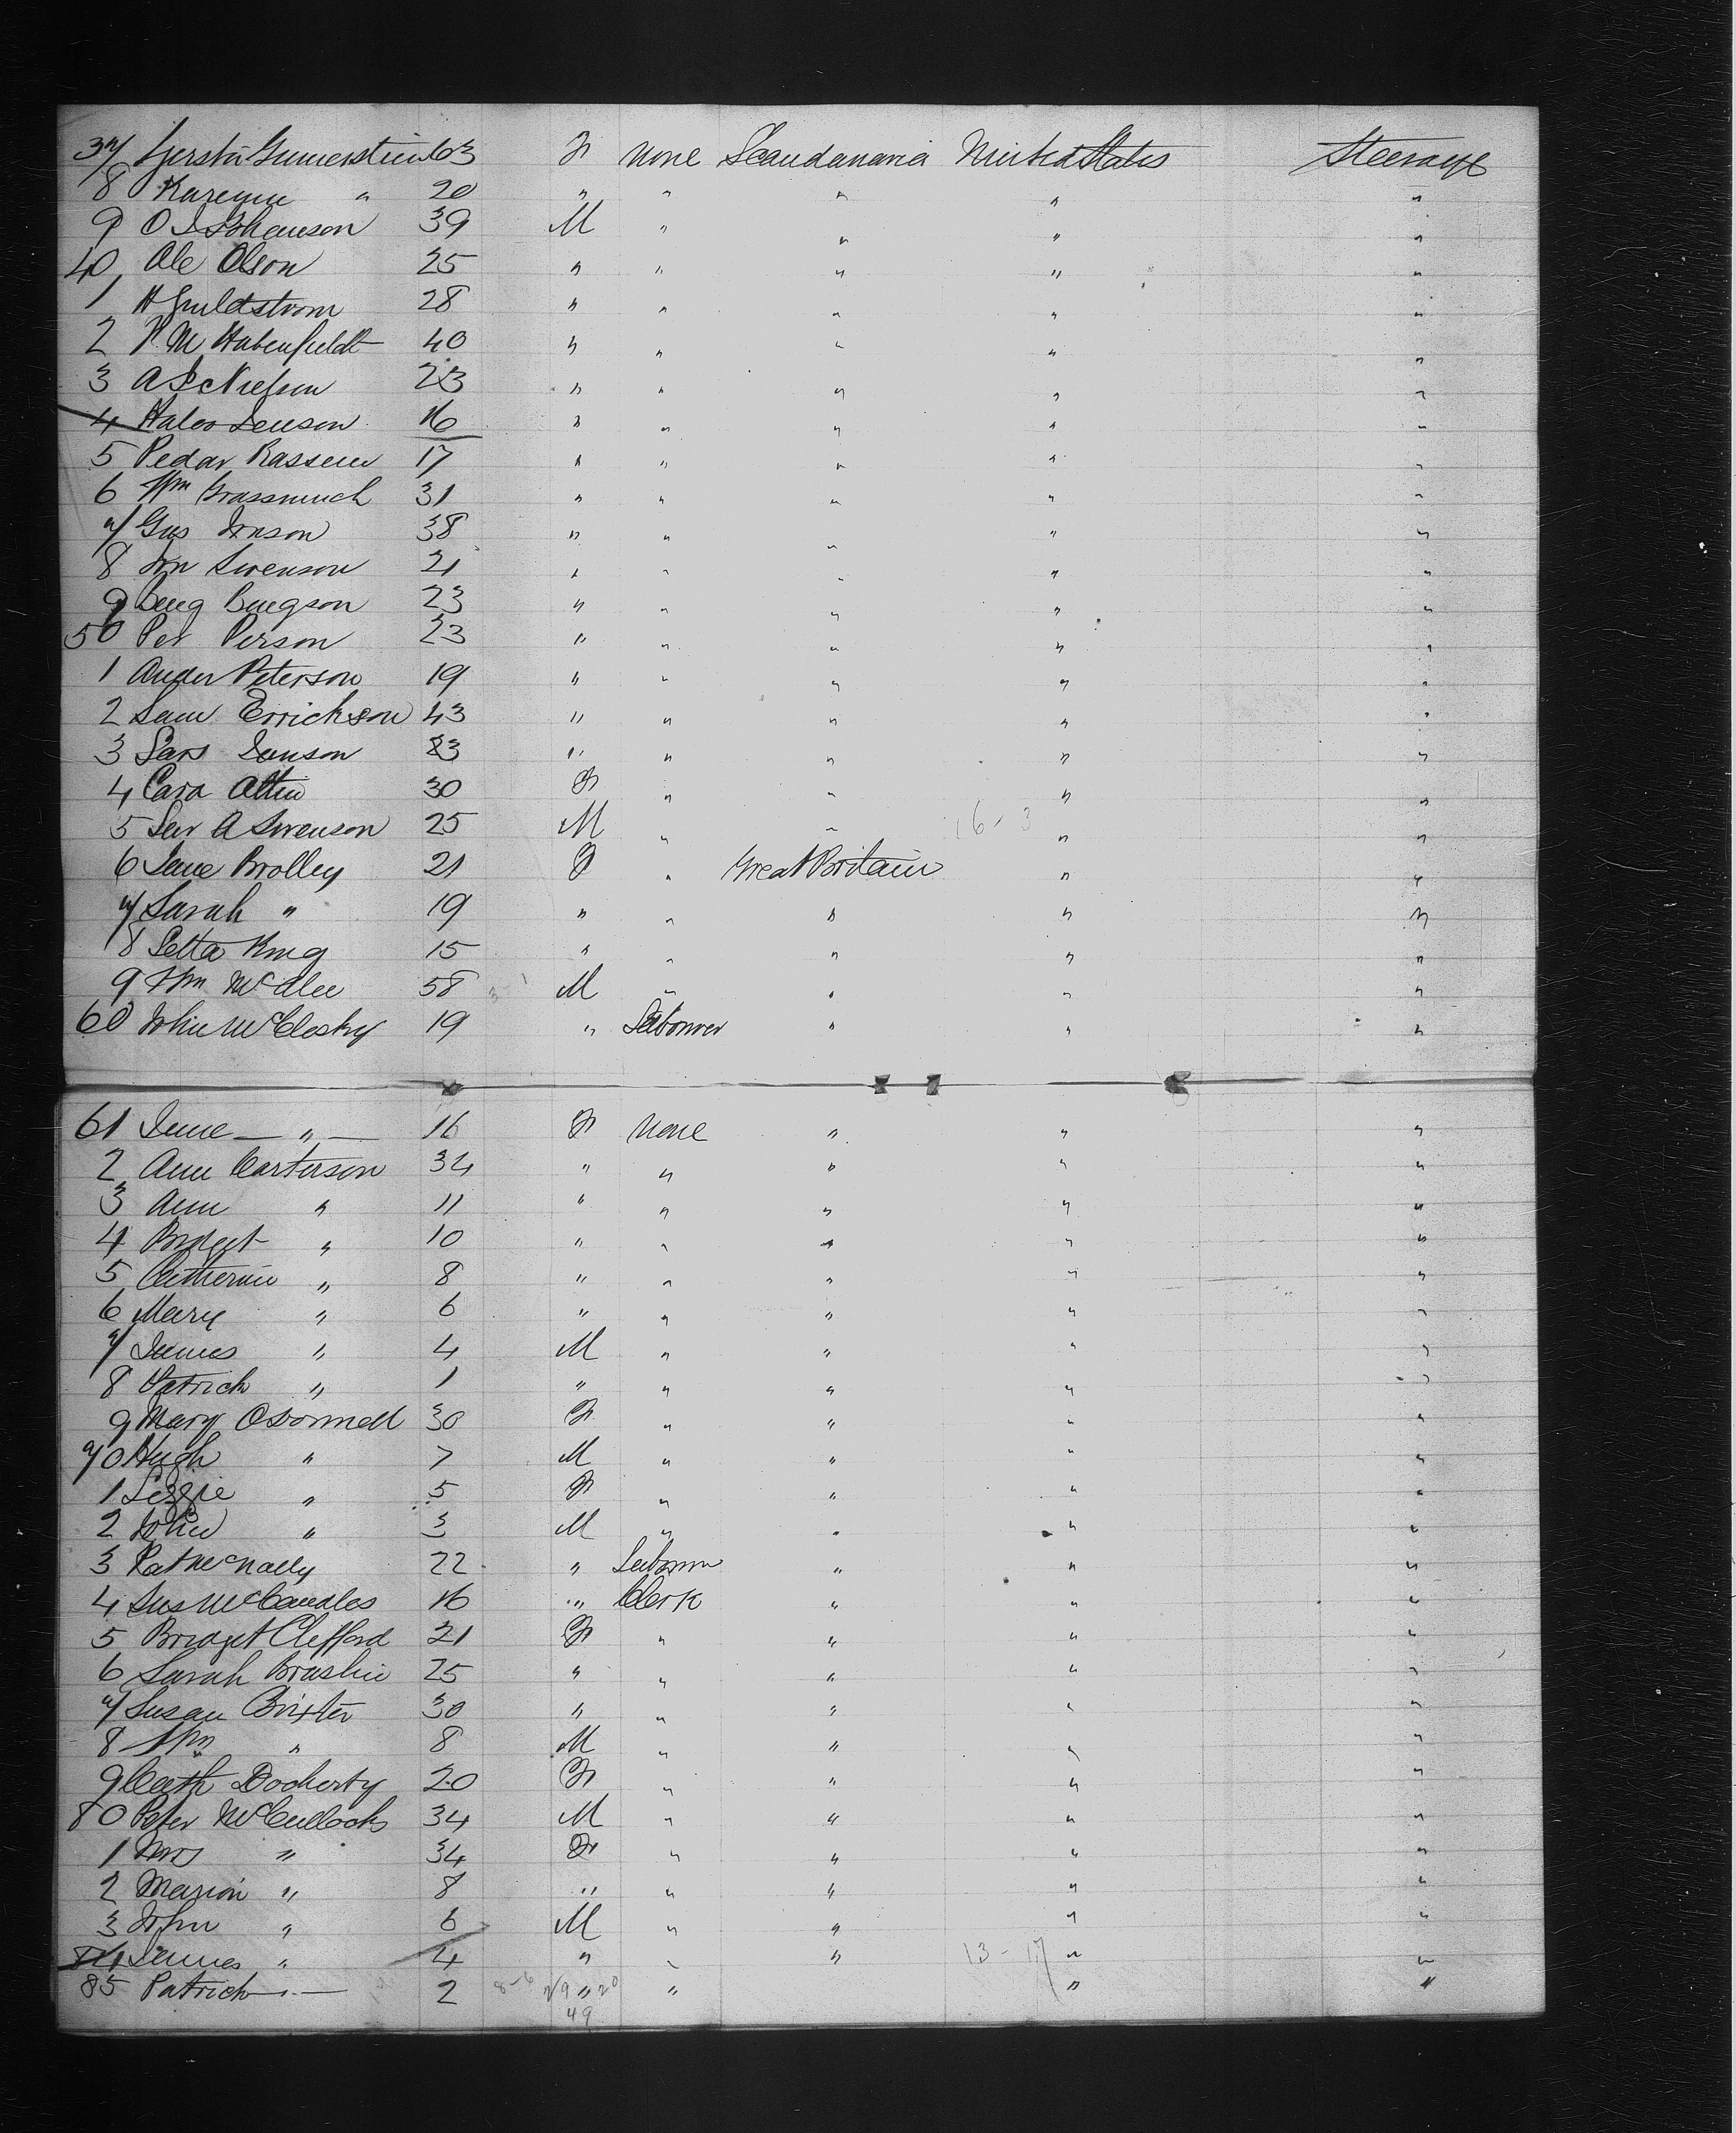 37 Gunnerstein 63 F None Scandanavia United States Steerage
8 " 20 " " " " "
9 O Johanson 39 M " " " "
40 Ole Olson 25 " " " " "
1 H Guldstrom 28 " " " " "
2 P. M Habenfeldt 40 " " " " "
3 A Nielson 23 " " " " "
4 Jenson 16 " " " " "
5 Pedar Rassem 17 " " " " "
6 Wm Grassmuch 31 " " " " "
7 Gus Jonson 38 " " " " "
8 Jon Swenson 21 " " " " "
9 Beng Bengson 23 " " " " "
50 Per Person 23 " " " " "
1 Ander Peterson 19 " " " " "
2 Sam Errickson 43 " " " " "
3 Lars Janson 23 " " " " "
4 Cara Attin 30 F " " " "
5 A Swenson 25 M " " 16-3 " "
6 Jane Brolley 21 F " Great Britain " "
7 Sarah " 19 " " " " "
8 Letta King 15 " " " " "
9 Wm McAlee 58 M " " " "
60 John McClosky 19 " Labourer " " "
61 Jane — " — 16 F None " " "
2 Ann Carterson 34 " " " " "
3 Ann " 11 " " " " "
4 Bridget " 10 " " " " "
5 Catherine " 8 " " " " "
6 Mary " 6 " " " " "
7 James " 4 M " " " "
8 Patrick " 1 " " " " "
9 Mary O'Donnell 30 F " " " "
70 Hugh " 7 M " " " "
1 Lizzie " 5 F " " " "
2 John " 3 M " " " "
3 Pat McNally 22 " Labourer " " "
4 Jas McCandles 16 " Clerk " " "
5 Bridget Clefford 21 F " " " "
6 Sarah Braslin 25 " " " " "
7 Susan 30 " " " " "
8 Wm " 8 M " " " "
9 Cath Docherty 20 F " " " "
80 Peter McCullock 34 M " " " "
1 Mrs " 34 F " " " "
2 Marion " 8 " " " " "
3 John " 6 M " " " "
84 James " 4 " " " 13-17 " "
85 Patrick — " — 2 8-6 29 " 20 " " "
49